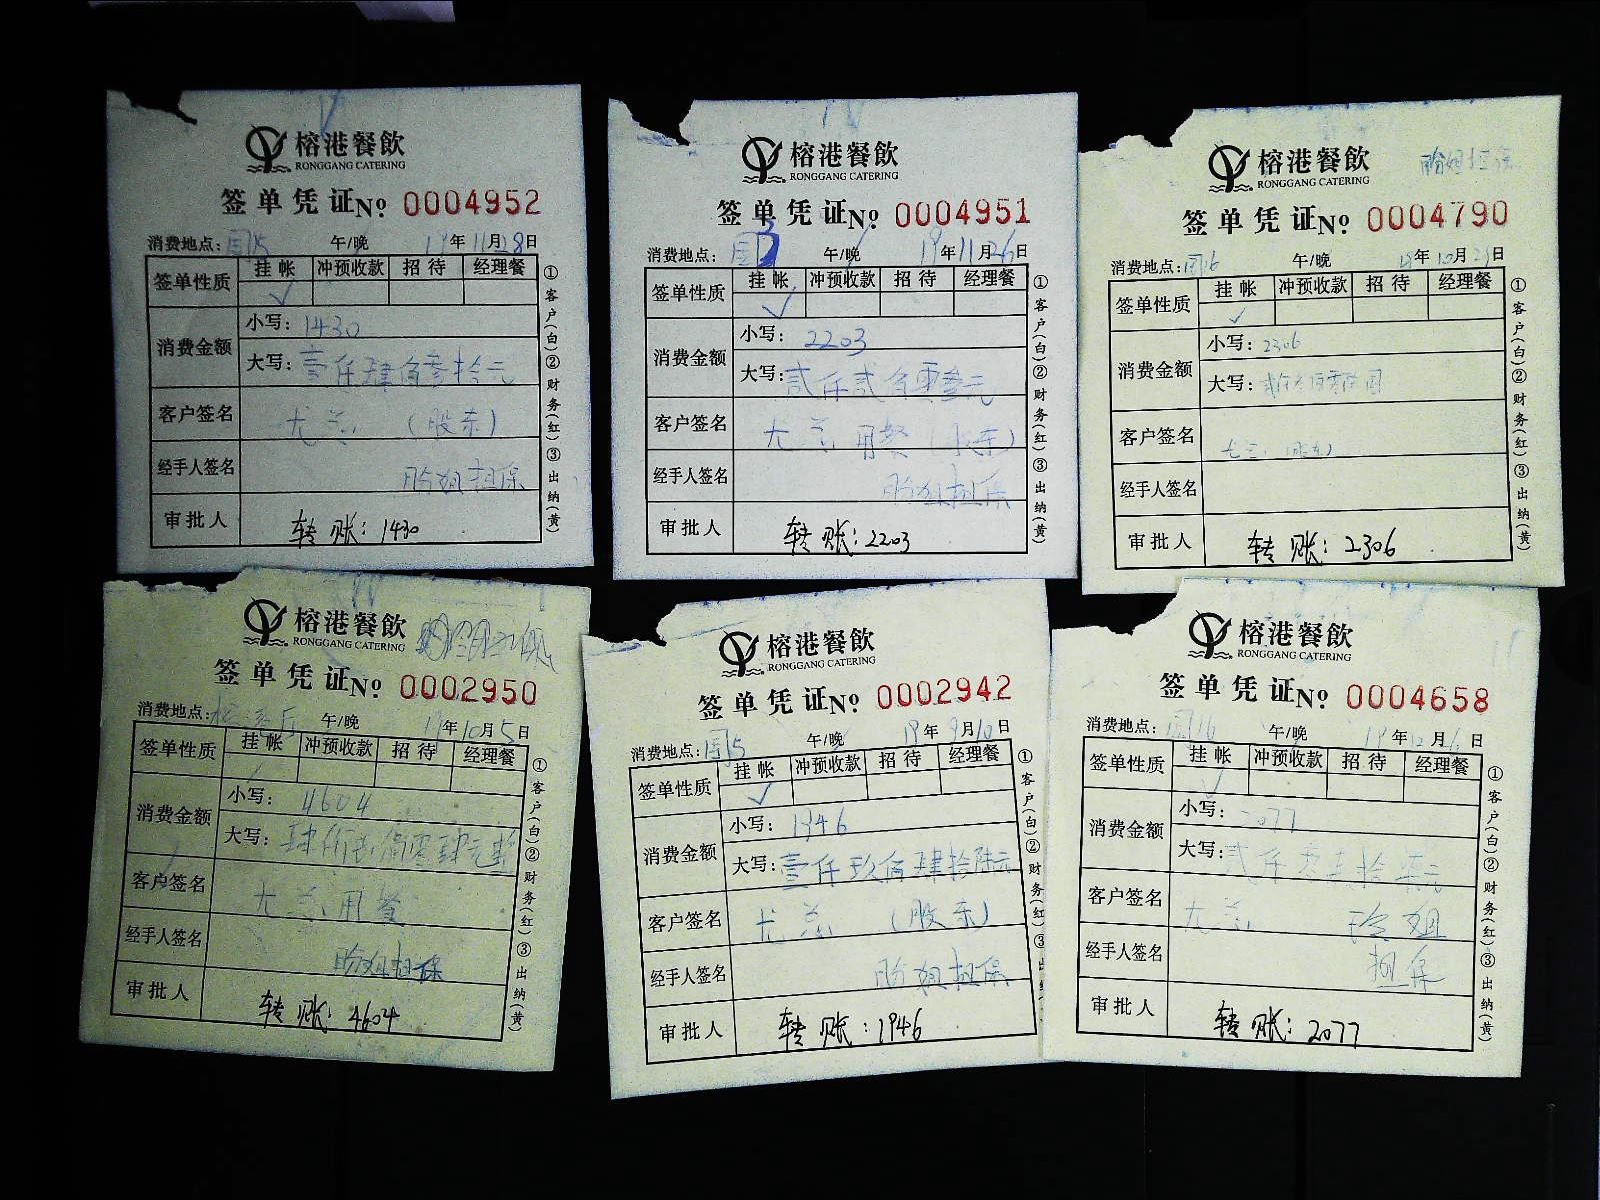 榕港餐飲
RONGGANG CATERING
签单凭证№ 0004952
消费地点: 午/晚 19年11月28日
签单性质 挂帐 冲预收款 招待 经理餐
✓
消费金额 小写: 1430
大写: 壹仟肆佰叁拾元
客户签名 尤总 (股东)
经手人签名 盼姐担保
审批人 转账: 1430
①客户(白)②财务(红)③出纳(黄)
榕港餐飲
RONGGANG CATERING
签单凭证№ 0004951
消费地点: 午/晚 19年11月26日
签单性质 挂帐 冲预收款 招待 经理餐
✓
消费金额 小写: 2203
大写: 贰仟贰佰零叁元
客户签名 尤总用餐 (股东)
经手人签名 盼姐担保
审批人 转账: 2203
①客户(白)②财务(红)③出纳(黄)
榕港餐飲
RONGGANG CATERING
盼姐担保
签单凭证№ 0004790
消费地点: 午/晚 19年10月29日
签单性质 挂帐 冲预收款 招待 经理餐
✓
消费金额 小写: 2306
大写:
客户签名 尤总 (股东)
经手人签名
审批人 转账: 2306
①客户(白)②财务(红)③出纳(黄)
榕港餐飲
RONGGANG CATERING
签单凭证№ 0002950
消费地点: 午/晚 19年10月5日
签单性质 挂帐 冲预收款 招待 经理餐
消费金额 小写: 4604
大写: 肆仟陆佰零肆元整
客户签名 尤总用餐
经手人签名 盼姐担保
审批人 转账: 4604
①客户(白)②财务(红)③出纳(黄)
榕港餐飲
RONGGANG CATERING
签单凭证№ 0002942
消费地点: 午/晚 19年9月10日
签单性质 挂帐 冲预收款 招待 经理餐
✓
消费金额 小写: 1946
大写: 壹仟玖佰肆拾陆元
客户签名 尤总 (股东)
经手人签名 盼姐担保
审批人 转账: 1946
①客户(白)②财务(红)③出
榕港餐飲
RONGGANG CATERING
签单凭证№ 0004658
消费地点: 午/晚 19年12月6日
签单性质 挂帐 冲预收款 招待 经理餐
✓
消费金额 小写: 2077
大写: 贰仟零柒拾柒元
客户签名 尤总 玲姐
经手人签名 担保
审批人 转账: 2077
①客户(白)②财务(红)③出纳(黄)